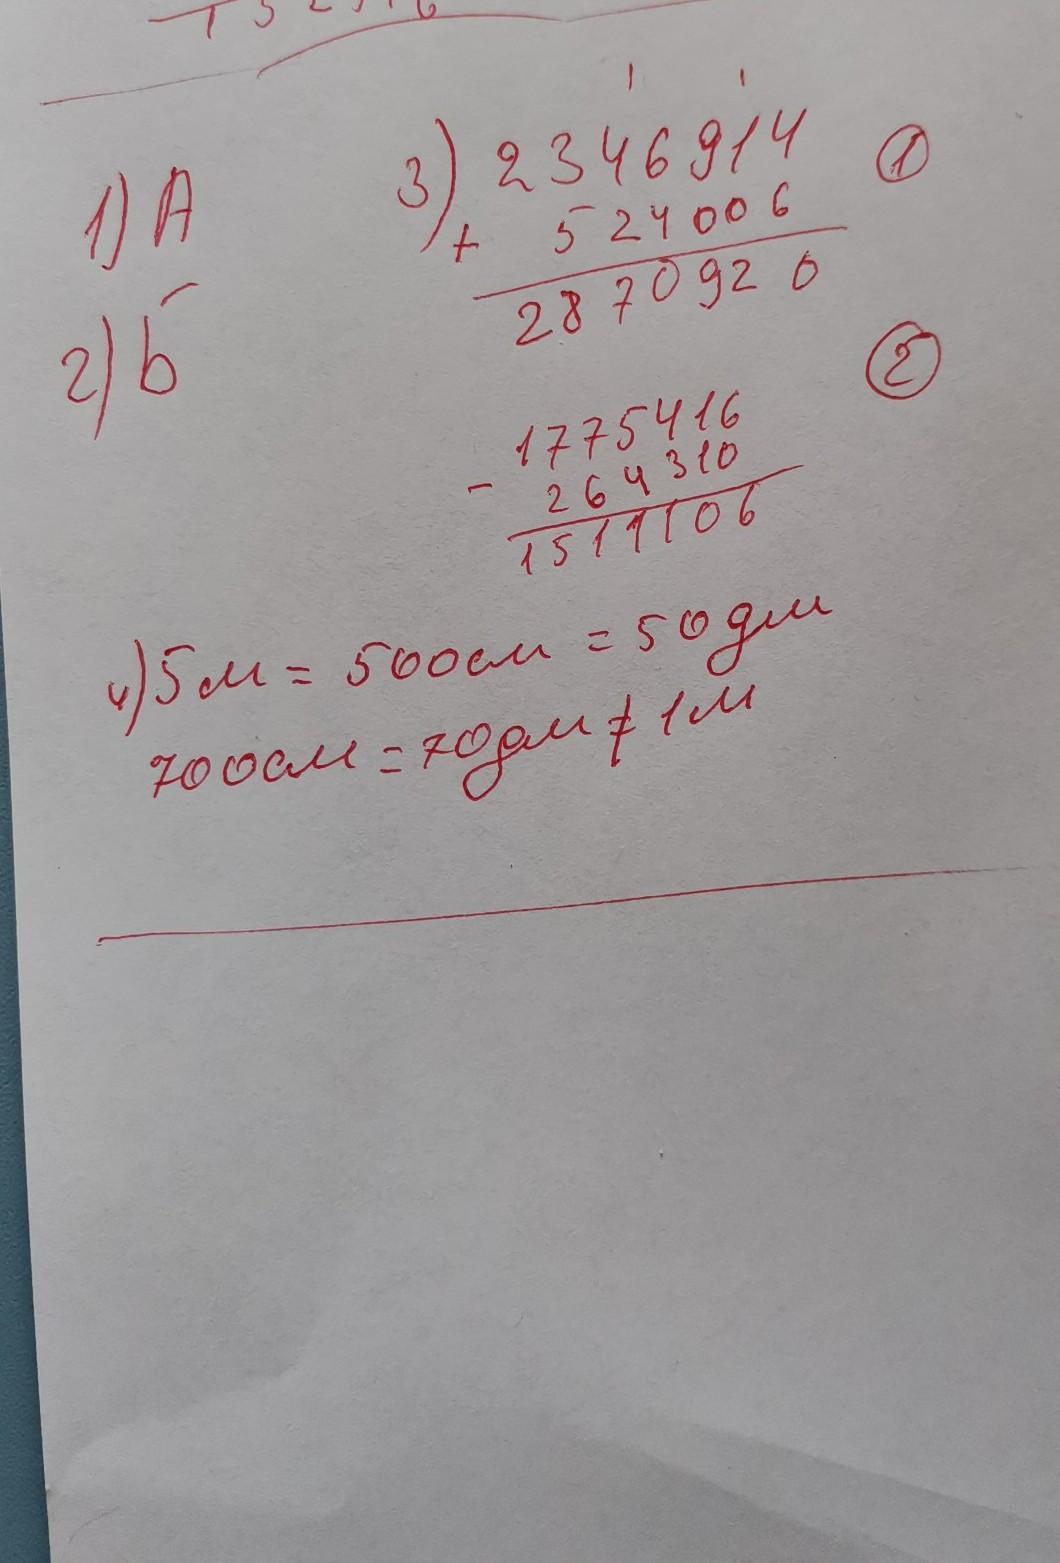 1) А
2) Б
3) 2346914 ①
+ 524006
2870920
②
- 1775416
264310
1511106
4) 5м = 500см = 50дм
700см = 70дм ≠ 1м